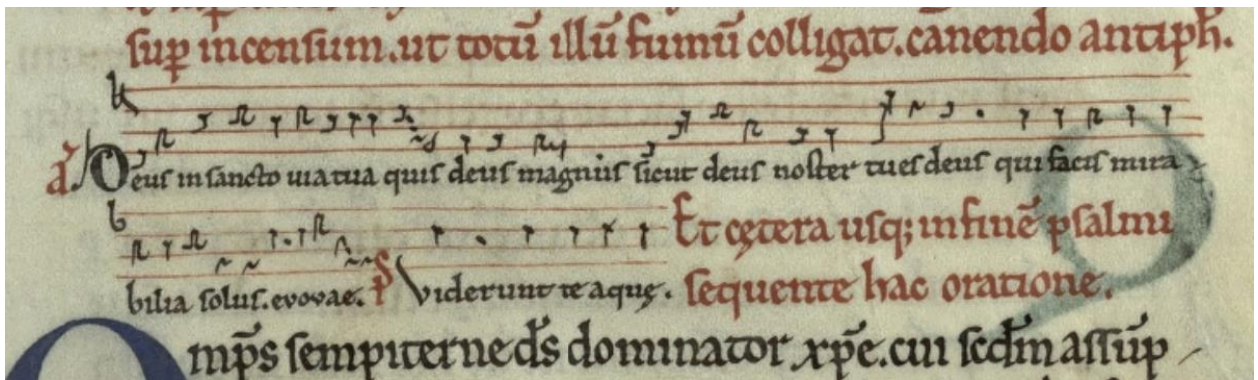 sup̱ incensum. ut totū illū fumū colligat. canendo antiph̄.
a̅. Deus in sancto uia tua quis deus magnus sicut deus noster tu es deus qui facis mira
bilia solus. evovae. p̄s Viderunt te aquę. Et cętera usq; in finē psalmi
sequente hac oratione.
Omp̄s sempiterne d̄s dominator xp̄e. cui scd̄m assūp